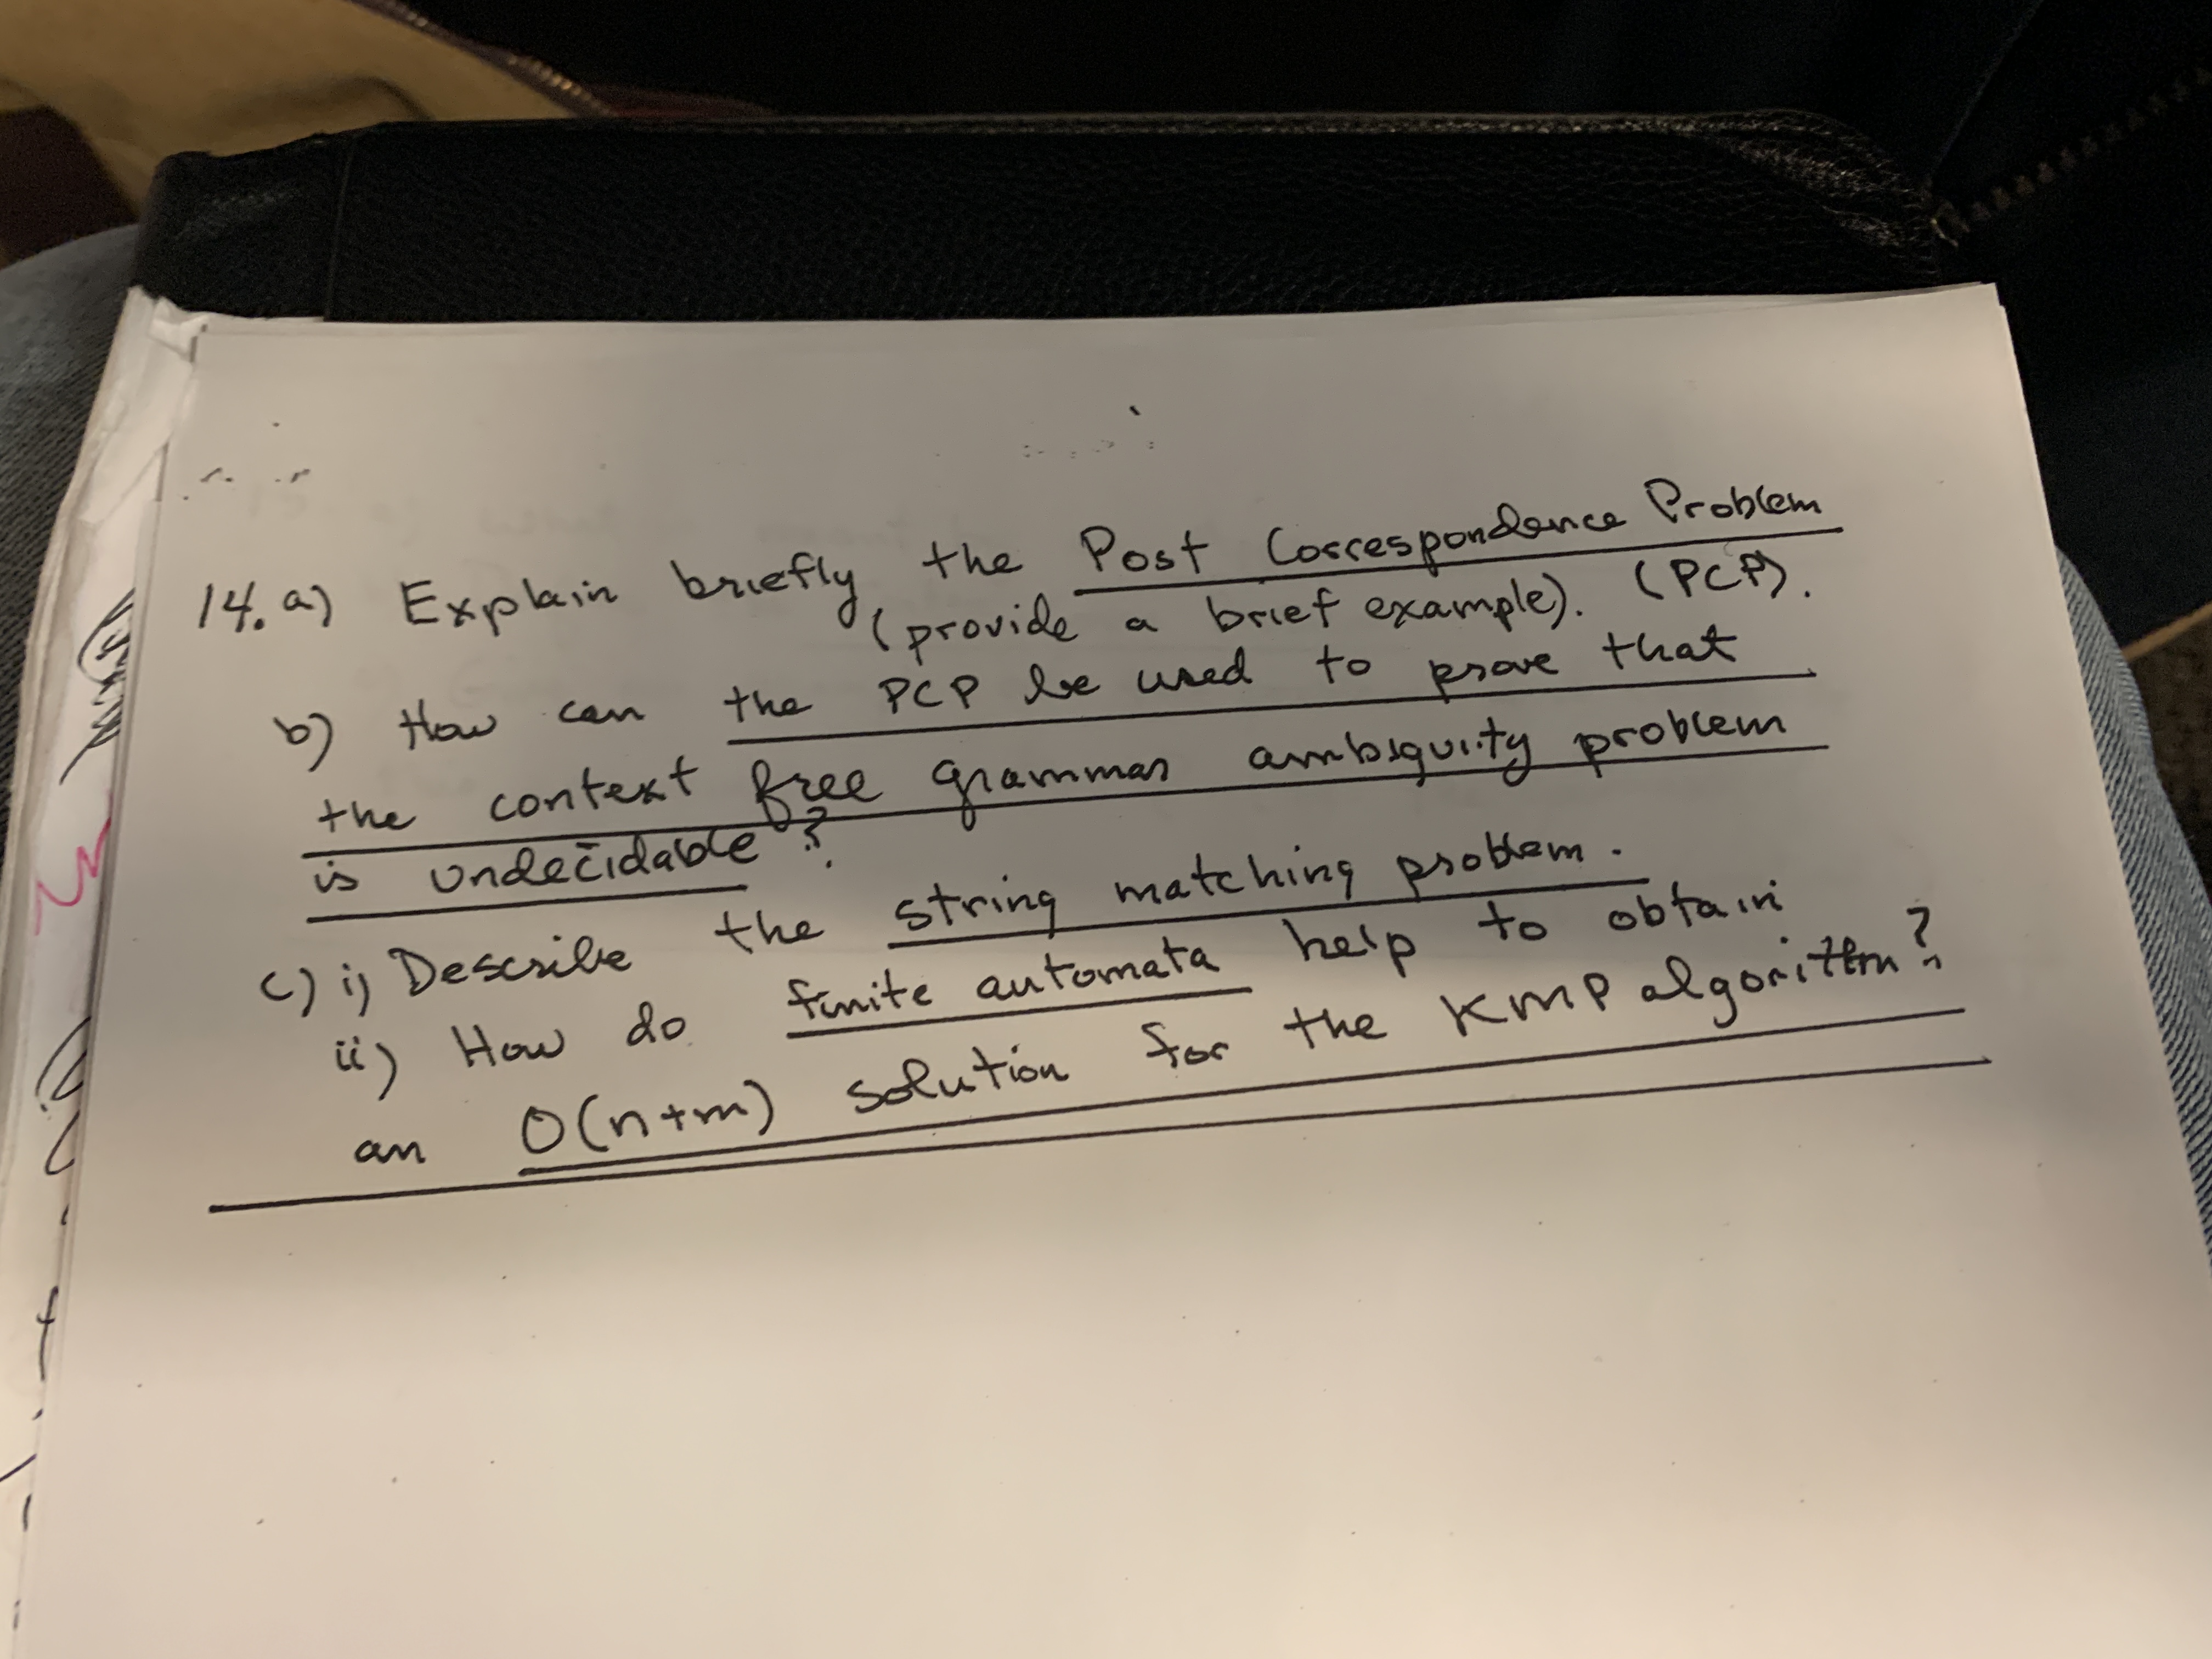 14. a) Explain briefly the Post Correspondence Problem
(provide a brief example). (PCP).
b) How can the PCP be used to prove that
the context free grammar ambiguity problem
is undecidable?
c) i) Describe the string matching problem.
ii) How do finite automata help to obtain
an O(n+m) solution for the KMP algorithm?